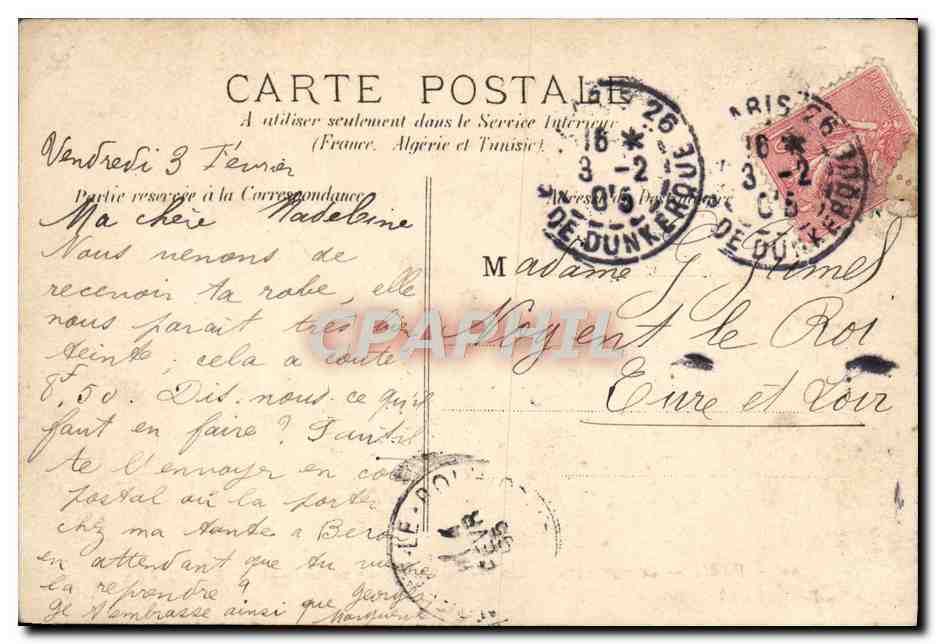 CARTE POSTALE
A utiliser seulement dans le Service Intérieur
(France, Algérie et Tunisie)
Partie réservée à la Correspondance
Vendredi 3 Février
Ma chère Madeleine
Nous venons de
recevoir ta robe, elle
nous parait très bien
teinte; cela a couté
8F,50. Dis-nous ce qu'il
faut en faire? Faut-il
te l'envoyer en colis
postal ou la porter
chez ma tante a
en attendant que tu viennes
la reprendre?
Je t'embrasse ainsi que Georges
Marguerite
PARIS 26
16 * 3 -2 05
R. DE DUNKERQUE
PARIS 26
16 * 3 -2 05
R. DE DUNKERQUE
Madame G.
Nogent le Roi
Eure et Loir
CPAPHIL
LE-ROI